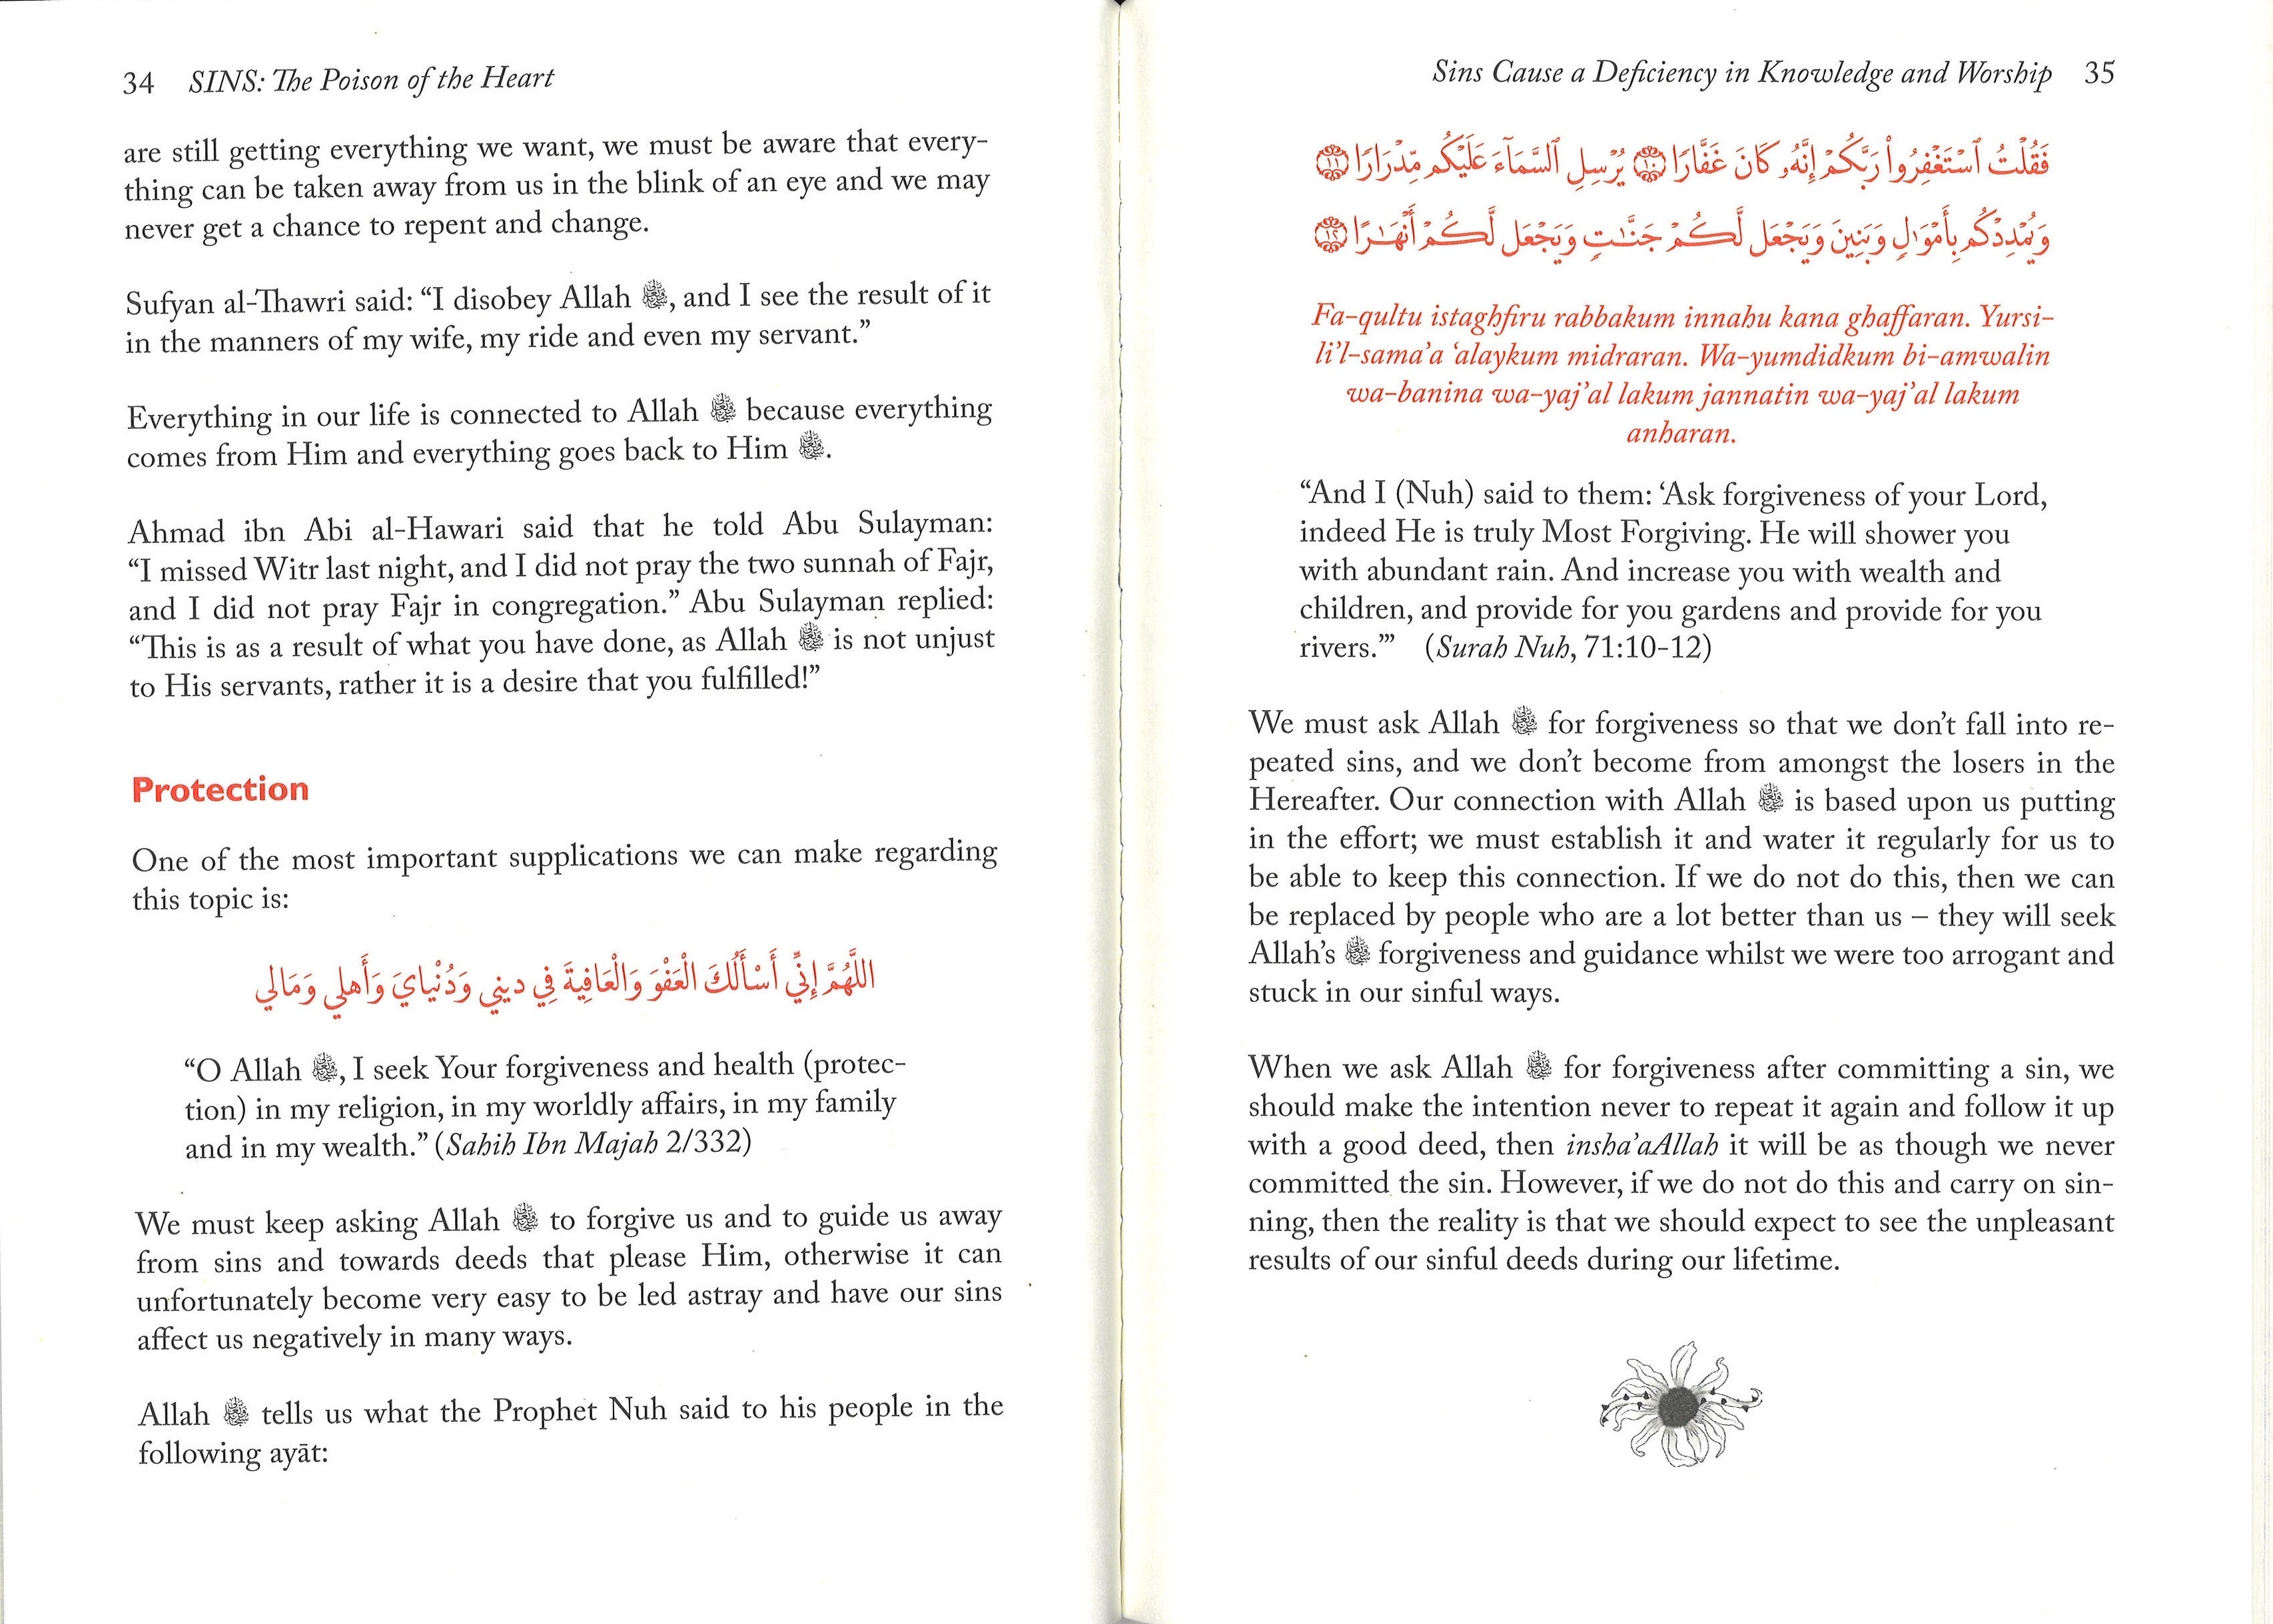 34 SINS: The Poison of the Heart
are still getting everything we want, we must be aware that every-
thing can be taken away from us in the blink of an eye and we may
never get a chance to repent and change.
Sufyan al-Thawri said: “I disobey Allah ﷻ, and I see the result of it
in the manners of my wife, my ride and even my servant.”
Everything in our life is connected to Allah ﷻ because everything
comes from Him and everything goes back to Him ﷻ.
Ahmad ibn Abi al-Hawari said that he told Abu Sulayman:
“I missed Witr last night, and I did not pray the two sunnah of Fajr,
and I did not pray Fajr in congregation.” Abu Sulayman replied:
“This is as a result of what you have done, as Allah ﷻ is not unjust
to His servants, rather it is a desire that you fulfilled!”
Protection
One of the most important supplications we can make regarding
this topic is:
اللَّهُمَّ إِنِّي أَسْأَلُكَ الْعَفْوَ وَالْعَافِيةَ فِي ديني وَدُنْيايَ وَأَهلي وَمَالي
“O Allah ﷻ, I seek Your forgiveness and health (protec-
tion) in my religion, in my worldly affairs, in my family
and in my wealth.” (Sahih Ibn Majah 2/332)
We must keep asking Allah ﷻ to forgive us and to guide us away
from sins and towards deeds that please Him, otherwise it can
unfortunately become very easy to be led astray and have our sins
affect us negatively in many ways.
Allah ﷻ tells us what the Prophet Nuh said to his people in the
following ayāt:
Sins Cause a Deficiency in Knowledge and Worship 35
فَقُلْتُ ٱسْتَغْفِرُوا۟ رَبَّكُمْ إِنَّهُۥ كَانَ غَفَّارًا ١٠ يُرْسِلِ ٱلسَّمَآءَ عَلَيْكُم مِّدْرَارًا ١١
وَيُمْدِدْكُم بِأَمْوَٰلٍ وَبَنِينَ وَيَجْعَل لَّكُمْ جَنَّـٰتٍ وَيَجْعَل لَّكُمْ أَنْهَـٰرًا ١٢
Fa-qultu istaghfiru rabbakum innahu kana ghaffaran. Yursi-
li’l-sama’a ‘alaykum midraran. Wa-yumdidkum bi-amwalin
wa-banina wa-yaj’al lakum jannatin wa-yaj’al lakum
anharan.
“And I (Nuh) said to them: ‘Ask forgiveness of your Lord,
indeed He is truly Most Forgiving. He will shower you
with abundant rain. And increase you with wealth and
children, and provide for you gardens and provide for you
rivers.’” (Surah Nuh, 71:10-12)
We must ask Allah ﷻ for forgiveness so that we don’t fall into re-
peated sins, and we don’t become from amongst the losers in the
Hereafter. Our connection with Allah ﷻ is based upon us putting
in the effort; we must establish it and water it regularly for us to
be able to keep this connection. If we do not do this, then we can
be replaced by people who are a lot better than us – they will seek
Allah’s ﷻ forgiveness and guidance whilst we were too arrogant and
stuck in our sinful ways.
When we ask Allah ﷻ for forgiveness after committing a sin, we
should make the intention never to repeat it again and follow it up
with a good deed, then insha’aAllah it will be as though we never
committed the sin. However, if we do not do this and carry on sin-
ning, then the reality is that we should expect to see the unpleasant
results of our sinful deeds during our lifetime.